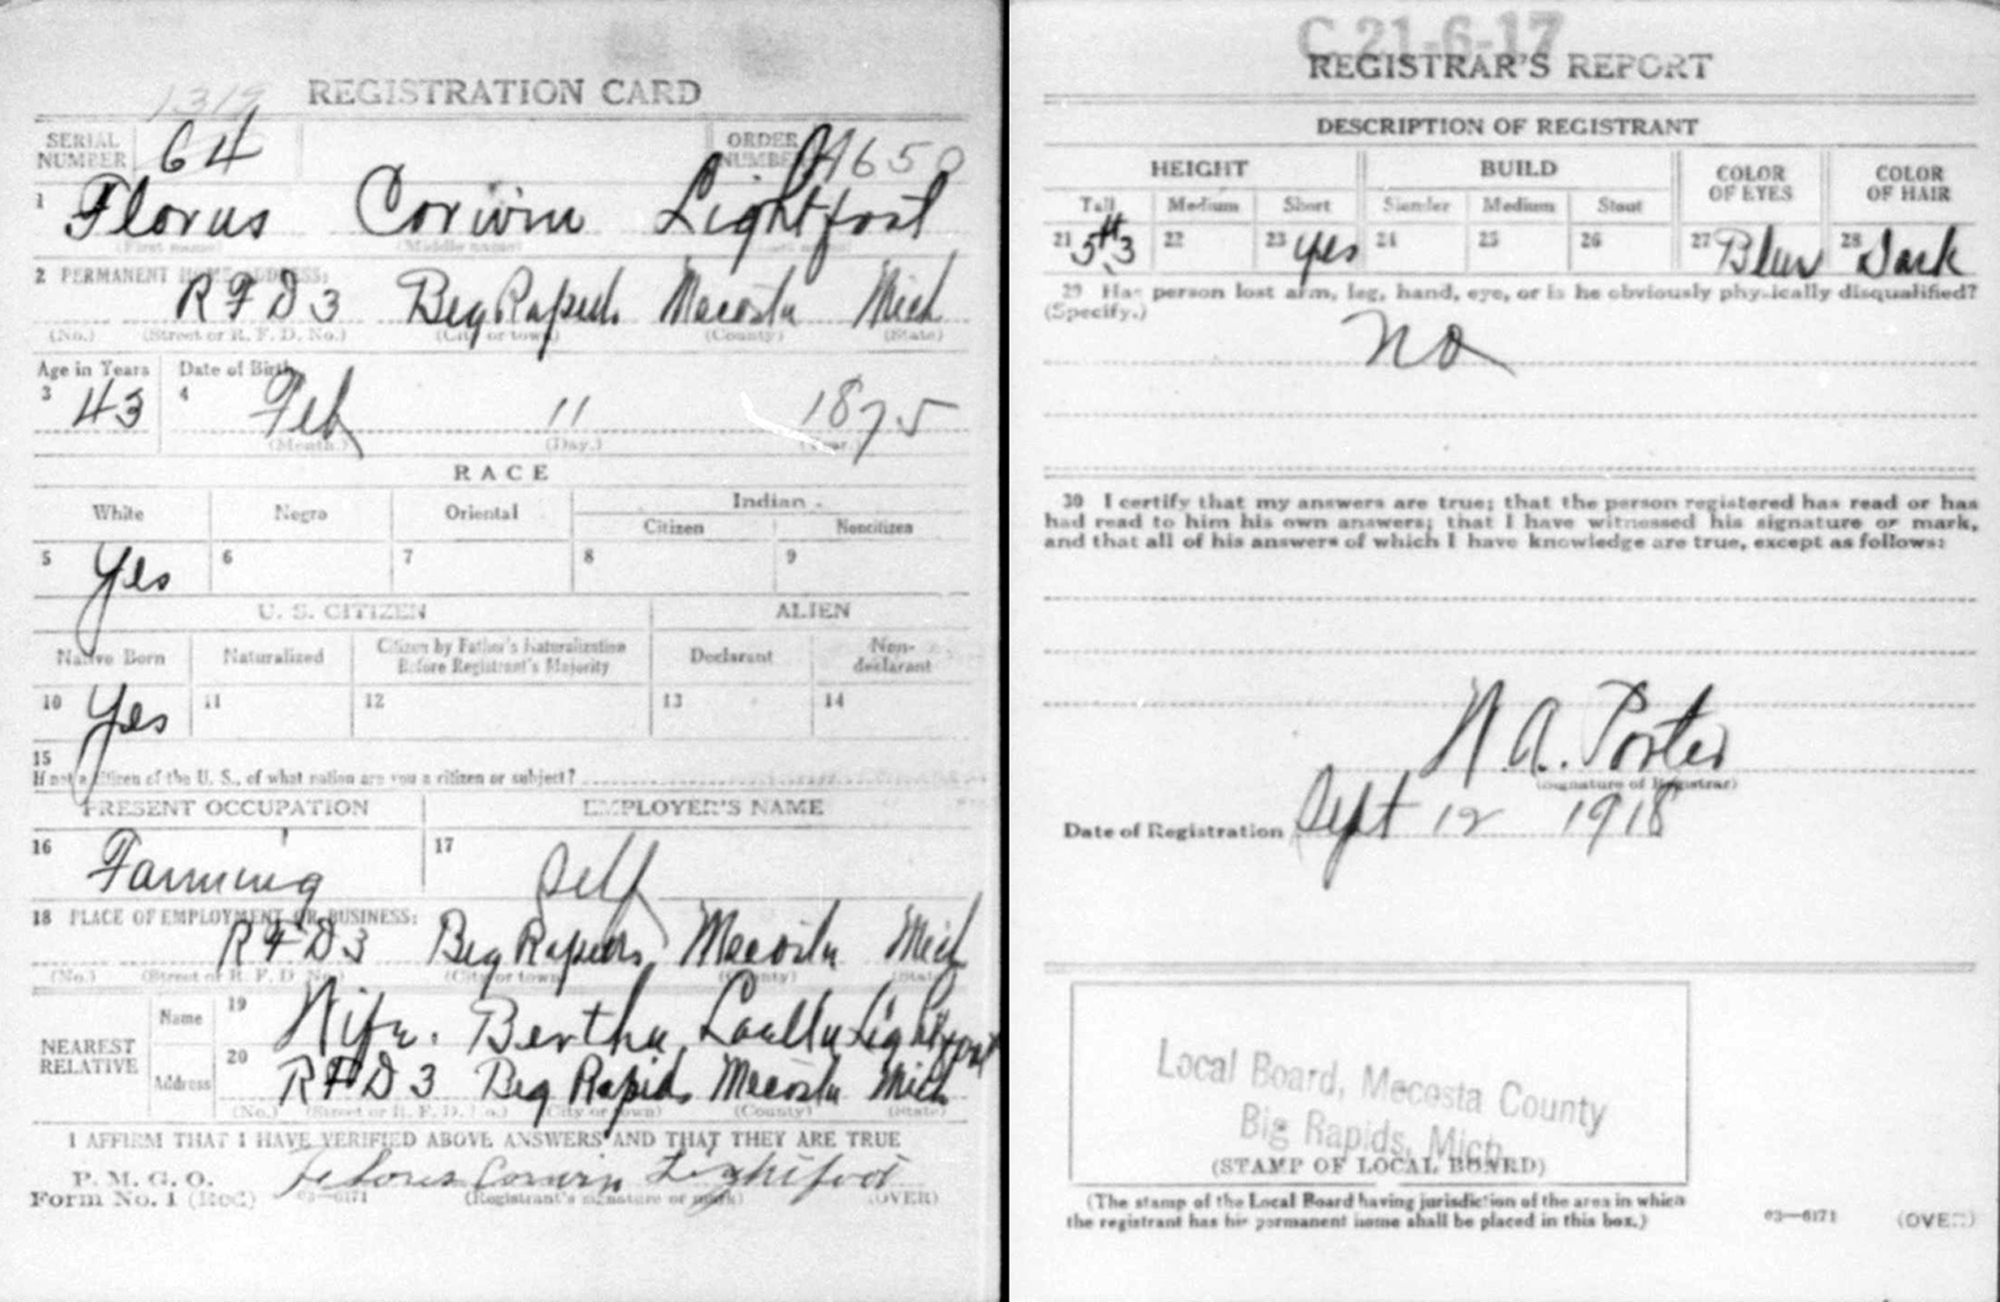 1319
REGISTRATION CARD
SERIAL NUMBER 64 ORDER NUMBER A1650
1 Florus Corwin Lightfoot
(First name) (Middle name) (Last name)
2 PERMANENT HOME ADDRESS:
R F D 3 Big Rapids Mecosta Mich
(No.) (Street or R. F. D. No.) (City or town) (County) (State)
Age in Years Date of Birth
3 43 4 Feb 11 1875
(Month.) (Day.) (Year.)
RACE
White Negro Oriental Indian
Citizen Noncitizen
5 Yes 6 7 8 9
U. S. CITIZEN ALIEN
Native Born Naturalized Citizen by Father's Naturalization Before Registrant's Majority Declarant Non-declarant
10 Yes 11 12 13 14
15
If not a citizen of the U. S., of what nation are you a citizen or subject?
PRESENT OCCUPATION EMPLOYER'S NAME
16 Farming 17 Self
18 PLACE OF EMPLOYMENT OR BUSINESS:
R F D 3 Big Rapids Mecosta Mich
(No.) (Street or R. F. D. No.) (City or town) (County) (State)
NEAREST RELATIVE
Name 19 Wife. Bertha Louella Lightfoot
Address 20 R F D 3 Big Rapids Mecosta Mich
(No.) (Street or R. F. D. No.) (City or town) (County) (State)
I AFFIRM THAT I HAVE VERIFIED ABOVE ANSWERS AND THAT THEY ARE TRUE
P. M. G. O.
Form No. 1 (Red) 03—6171 Florus Corwin Lightfoot
(Registrant's signature or mark) (OVER)
C 21-6-17
REGISTRAR'S REPORT
DESCRIPTION OF REGISTRANT
HEIGHT BUILD COLOR OF EYES COLOR OF HAIR
Tall Medium Short Slender Medium Stout
21 5 ft 3 22 23 yes 24 25 26 27 Blue 28 Dark
29 Has person lost arm, leg, hand, eye, or is he obviously physically disqualified?
(Specify.)
no
30 I certify that my answers are true; that the person registered has read or has
had read to him his own answers; that I have witnessed his signature or mark,
and that all of his answers of which I have knowledge are true, except as follows:
A. Porter
(Signature of Registrar)
Date of Registration Sept 12 1918
Local Board, Mecosta County
Big Rapids, Mich
(STAMP OF LOCAL BOARD)
(The stamp of the Local Board having jurisdiction of the area in which
the registrant has his permanent home shall be placed in this box.)
03—6171 (OVER)